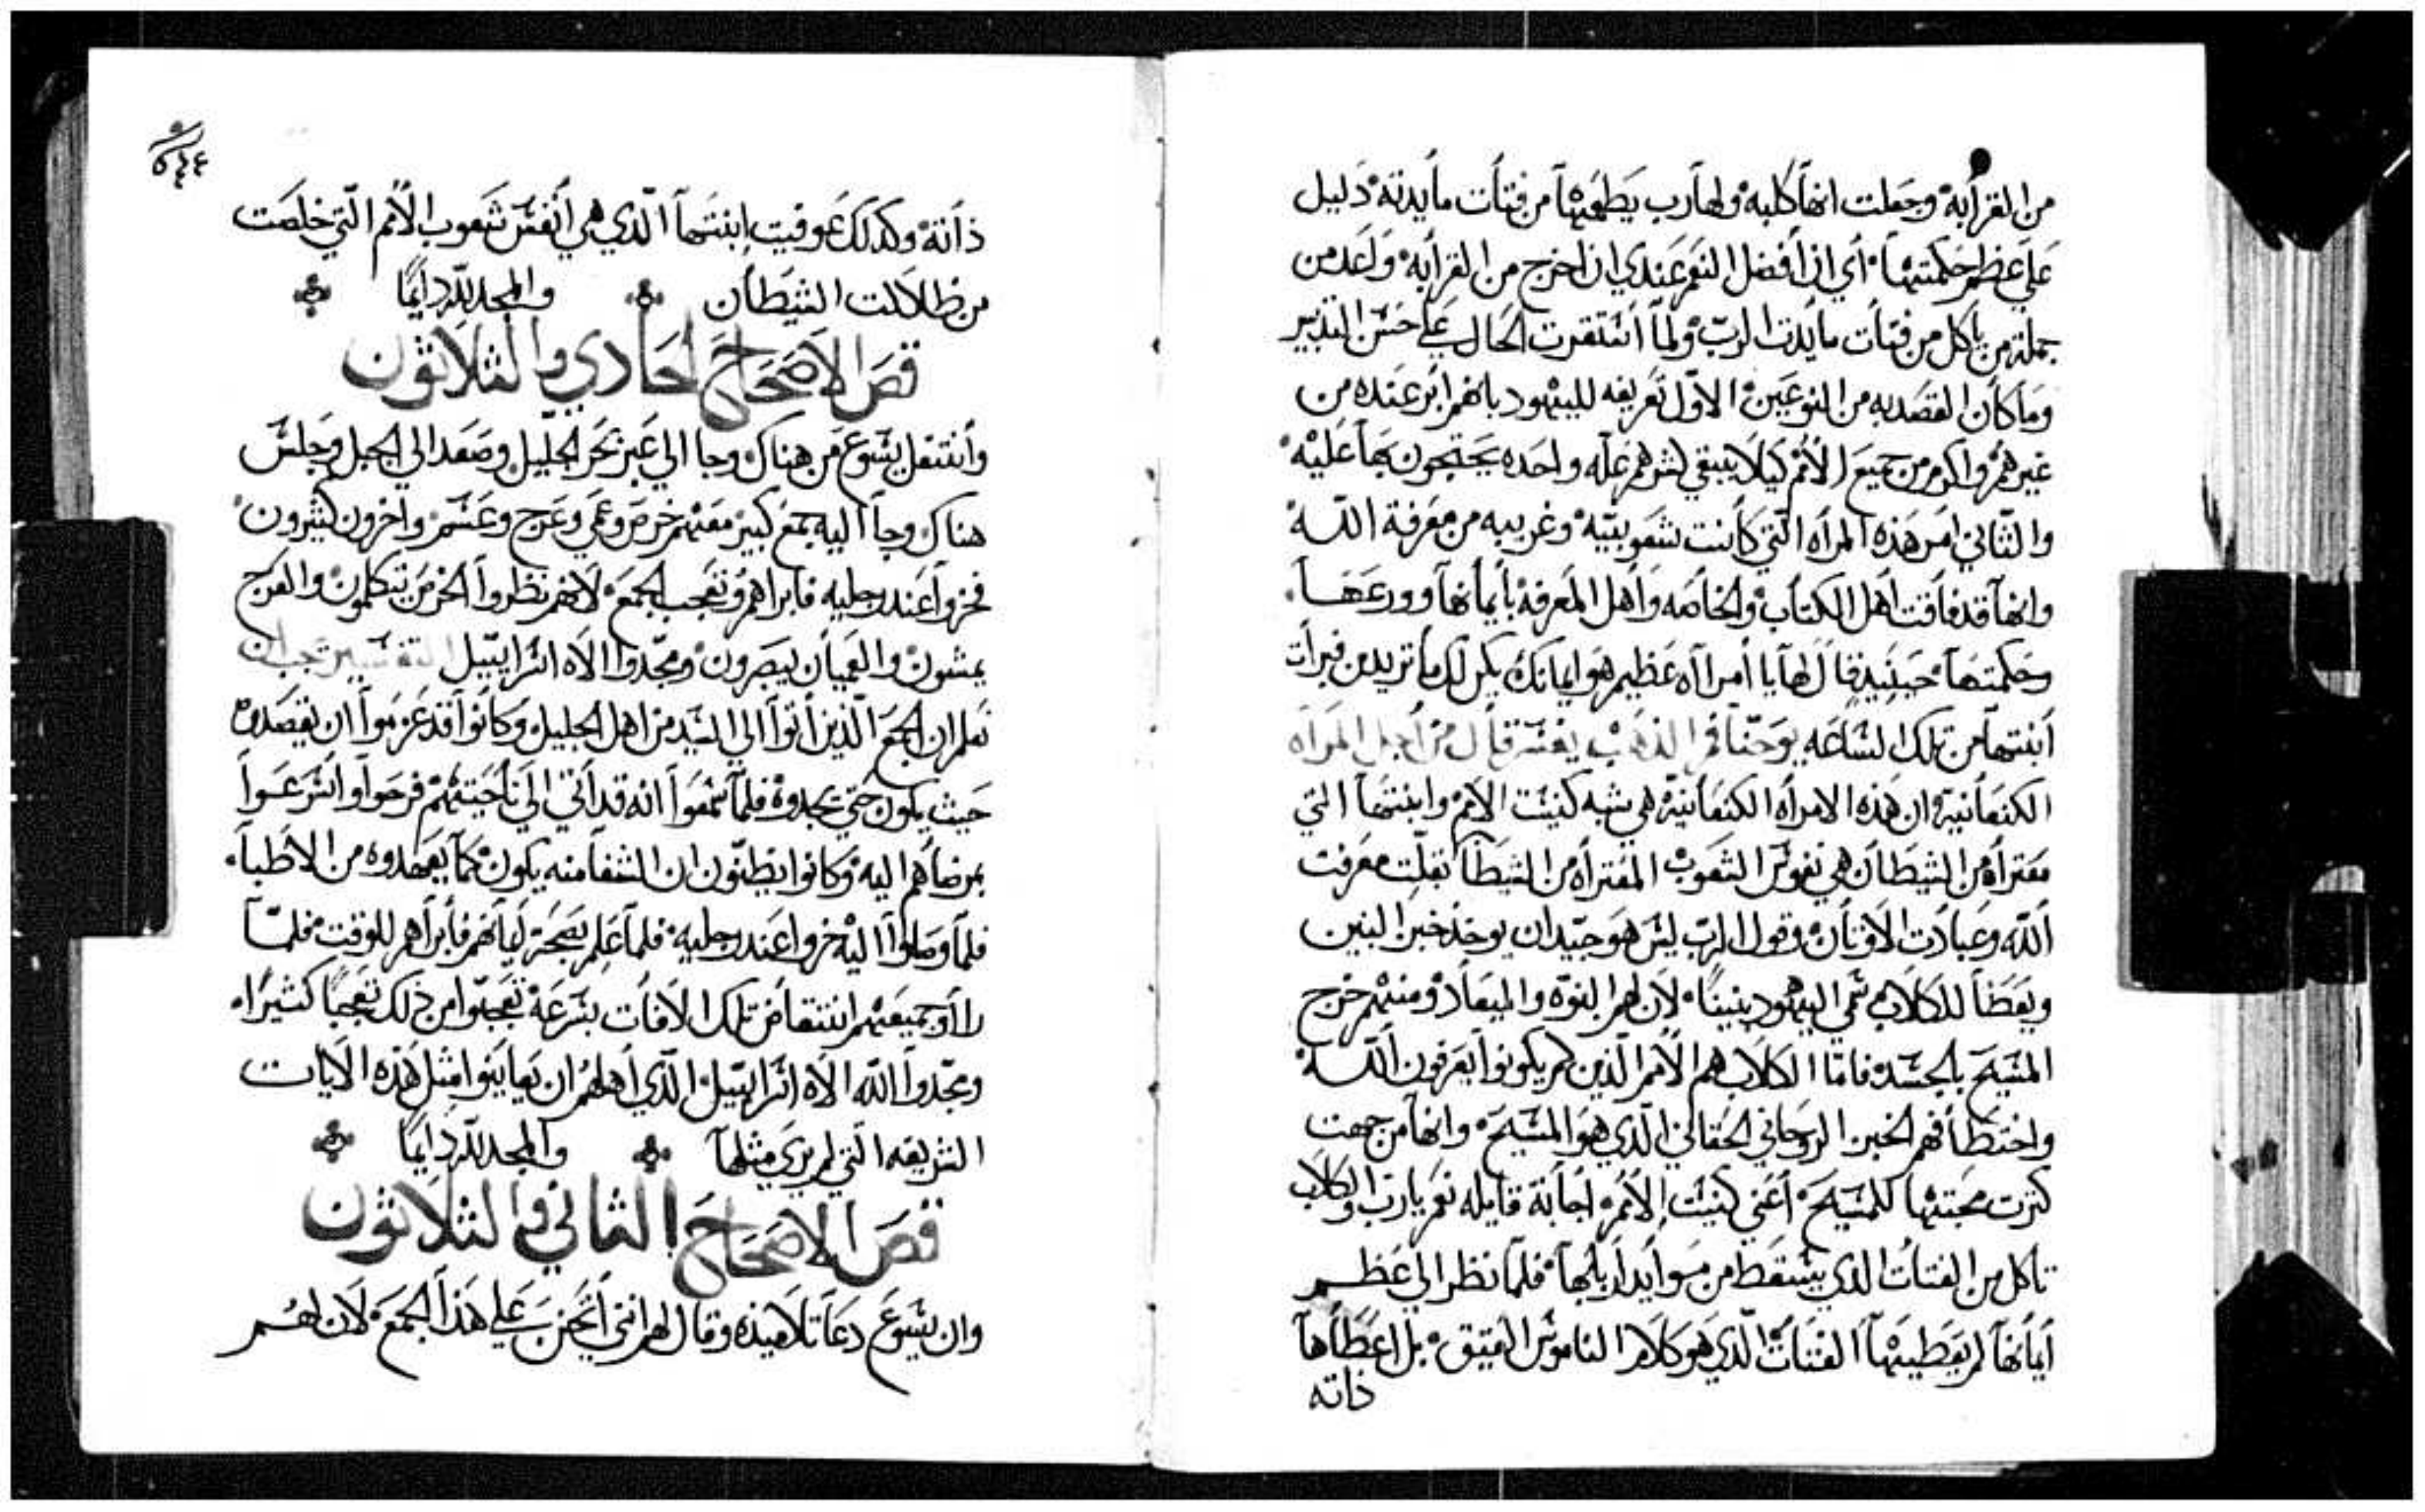 من القرابه وجعلت انها كلبه ولها رب يطعمها من فتات مايدته دليل
علي عظم حكمتها اي ان افضل النعم عندي ان اخرج من القرابه واعد من
جملة من ياكل من فتات مايدت الرب ولما استقرت الحال علي حسن التدبير
وما كان القصد به من النوعين الاول تعريفه لليهود بانهم ابر عنده من
غيرهم واكرم من جميع الامم كيلا يبقي لشرهم عله واحده يحتجون بها عليه
والثاني امر هذه المراه التي كانت شعوبيه وغريبه من معرفة الله
وانها قد فاقت اهل الكتاب والخاصه واهل المعرفة بايمانها وورعها
وحكمتها حينيذ قال لها يا امراه عظيم هو ايمانك يكن لك ما تريدين فبرات
ابنتها من تلك الساعه يوحنا فم الذهب يفسر قال من اجل المراه
الكنعانية ان هذه الامراه الكنعانية هي شبه كنيست الامم وابنتها التي
معتراه من الشيطان هي نفوس الشعوب المعتراه من الشيطان بقلت معرفت
الله وعبادت الاوثان وقول الرب ليس هو جيد ان يوخذ خبز البنين
ويعطا للكلاب سمي اليهود بنينا لان لهم البنوة والميعاد ومنهم خرج
المسيح بالجسد فاما الكلاب هم الامم الذين لم يكونوا يعرفون الله
واختطافهم الخبز الروحاني الحقاني الذي هو المسيح وانها من جهت
كترت محبتها للمسيح اعني كنيست الامم اجابة قايله نعم يارب والكلاب
تاكل من الفتات الذي يسقط من موايد اربابها فلما نظر الي عظم
ايمانها لم يعطيها الفتات الذي هو كلام الناموس العتيق بل اعطاها
ذاته
٥٤٤
ذاته وكذلك عوفيت ابنتها الذي هي انفس شعوب الامم التي خلصت
من ظلالت الشيطان والمجد لله دايما
قص الاصحاح الحادي والثلاثون
وانتقل يسوع من هناك وجا الي عبر بحر الجليل وصعد الي الجبل وجلس
هناك وجا اليه جمع كبير معهم خرص وعمي وعرج وعسم واخرون كثيرون
فخروا عند رجليه فابراهم وتعجب الجمع لانهم نظروا الخرص تتكلمون والعرج
يمشون والعميان يبصرون ومجدوا الاه اسراييل التفسير يجب ان
تعلم ان الجمع الذين اتوا الي السيد من اهل الجليل وكانوا قد عزموا ان يقصدوه
حيث يكون حتي يجدوه فلما سمعوا انه قد اتي الي ناحيتهم فرحوا واسرعوا
بمرضاهم اليه وكانوا يظنون ان الشفا منه يكون كما يعهدوه من الاطبا
فلما وصلوا اليه خروا عند رجليه فلما علم بصحة ايمانهم فابراهم للوقت فلما
راوا جميعهم انتقاض تلك الافات بسرعة تعجبوا من ذلك تعجبا كثيرا
ومجدوا الله الاه اسراييل الذي اهلهم ان يعاينوا مثل هذه الايات
الشريفه التي لم يري مثلها والمجد لله دايما
قص الاصحاح الثاني والثلاثون
وان يسوع دعا تلاميذه وقال لهم انني اتحنن علي هذا الجمع لان لهم